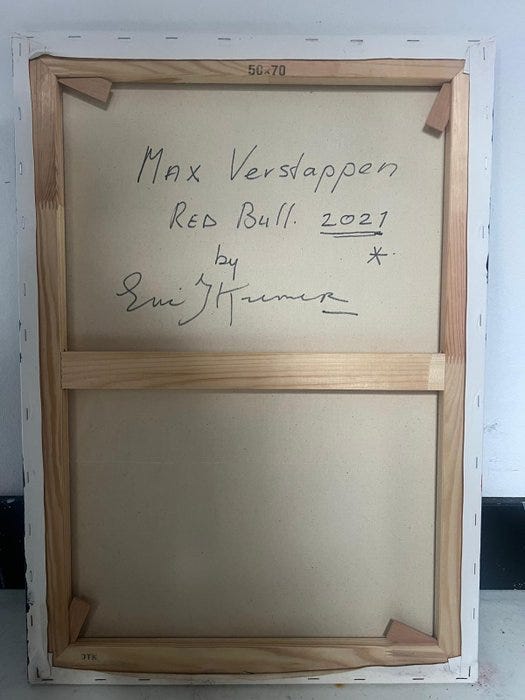 50x70
Max Verstappen
Red Bull. 2021
*
by
Eric J Kremer
JTK